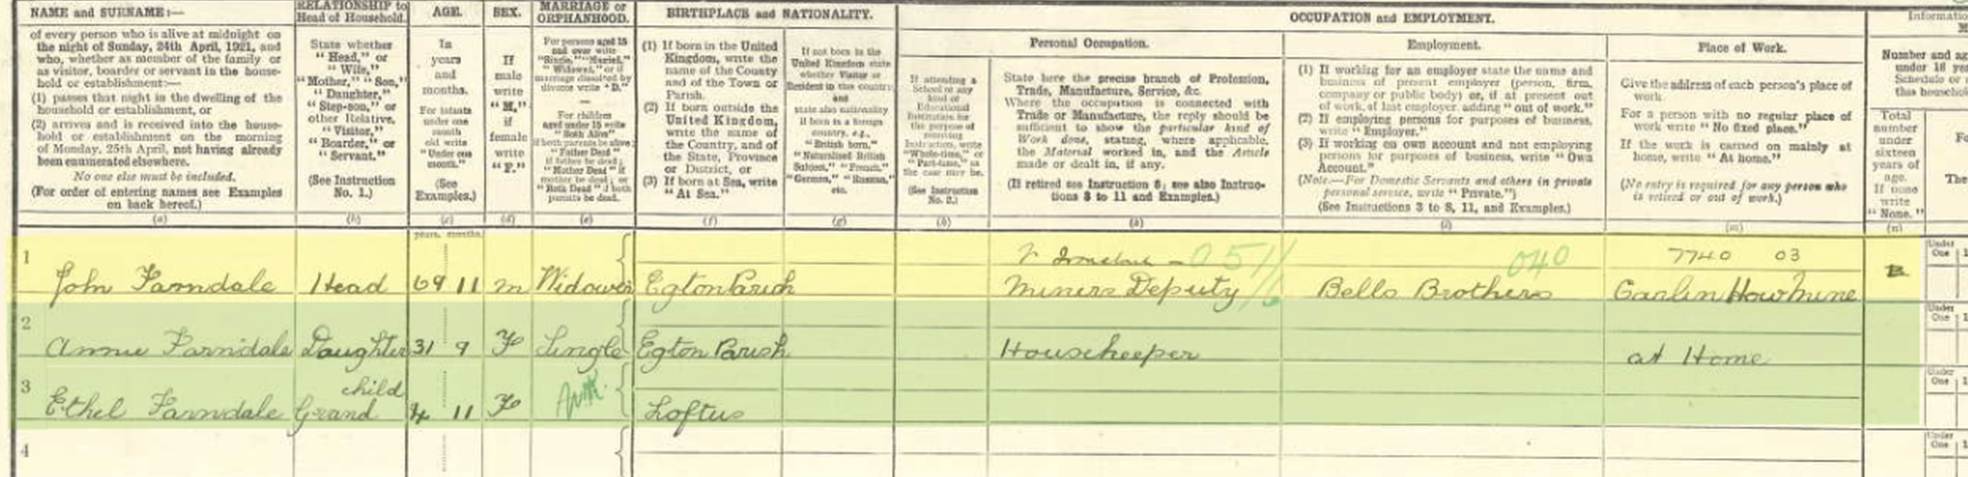 NAME and SURNAME:—
of every person who is alive at midnight on
the night of Sunday, 24th April, 1921, and
who, whether as member of the family or
as visitor, boarder or servant in the house-
hold or establishment:—
(1) passes that night in the dwelling of the
household or establishment, or
(2) arrives and is received into the house-
hold or establishment on the morning
of Monday, 25th April, not having already
been enumerated elsewhere.
No one else must be included.
(For order of entering names see Examples
on back hereof.)
(a)
RELATIONSHIP to
Head of Household.
State whether
"Head," or
"Wife,"
"Mother," "Son,"
"Daughter,"
"Step-son," or
other Relative,
"Visitor,"
"Boarder," or
"Servant."
(See Instruction
No. 1.)
(b)
AGE.
In
years
and
months.
For infants
under one
month
old write
"Under one
month."
(See
Examples.)
(c)
SEX.
If
male
write
"M,"
if
female
write
"F."
(d)
MARRIAGE or
ORPHANHOOD.
For persons aged 15
and over write
"Single," "Married,"
"Widowed," or if
marriage dissolved by
divorce write "D."
For children
aged under 15 write
"Both Alive"
if both parents be alive;
"Father Dead"
if father be dead;
"Mother Dead" if
mother be dead; or
"Both Dead" if both
parents be dead.
(e)
BIRTHPLACE and NATIONALITY.
(1) If born in the United
Kingdom, write the
name of the County
and of the Town or
Parish.
(2) If born outside the
United Kingdom,
write the name of
the Country, and of
the State, Province
or District, or
(3) If born at Sea, write
"At Sea."
(f)
If not born in the
United Kingdom state
whether Visitor or
Resident in this country
and
state also nationality
if born in a foreign
country, e.g.,
"British born,"
"Naturalised British
Subject," "French,"
"German," "Russian,"
etc.
(g)
OCCUPATION and EMPLOYMENT.
If attending a
School or any
kind of
Educational
Institution for
the purpose of
receiving
Instruction, write
"Whole-time," or
"Part-time," as
the case may be.
(See Instruction
No. 2.)
(h)
Personal Occupation.
State here the precise branch of Profession,
Trade, Manufacture, Service, &c.
Where the occupation is connected with
Trade or Manufacture, the reply should be
sufficient to show the particular kind of
Work done, stating, where applicable,
the Material worked in, and the Article
made or dealt in, if any.
(If retired see Instruction 8; see also Instruc-
tions 3 to 11 and Examples.)
(k)
Employment.
(1) If working for an employer state the name and
business of present employer (person, firm,
company or public body) or, if at present out
of work, of last employer, adding "out of work."
(2) If employing persons for purposes of business,
write "Employer."
(3) If working on own account and not employing
persons for purposes of business, write "Own
Account."
(Note.—For Domestic Servants and others in private
personal service, write "Private.")
(See Instructions 3 to 8, 11, and Examples.)
(l)
Place of Work.
Give the address of each person's place of
work.
For a person with no regular place of
work write "No fixed place."
If the work is carried on mainly at
home, write "At home."
(No entry is required for any person who
is retired or out of work.)
(m)
Number and ag
under 16 yea
Schedule or
this household
Total
number
under
sixteen
years of
age.
If none
write
"None."
(n)
years. months.
1 John Farndale Head 69 11 M Widower Egton Parish Miners Deputy 051/6 Bells Brothers 040 7740 03 Carlin How Mine
2 Annie Farndale Daughter 31 9 F Single Egton Parish Housekeeper at Home
3 Ethel Farndale Grand child 4 11 F Loftus
4
Under
One
Under
One
Under
One
Under
One